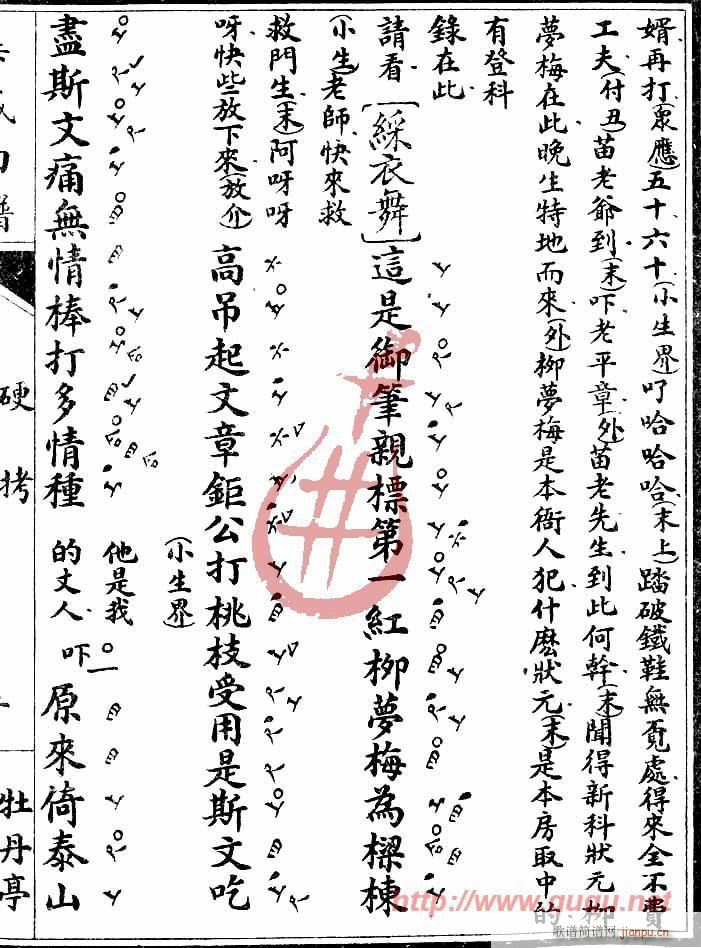 婿再打(衆應)五十六十(小生界)吖哈哈哈(末上)踏破鐵鞋無覓處得來全不費
工夫(付丑)苗老爺到(末)吓老平章(外)苗老先生到此何幹(末)聞得新科狀元柳
夢梅在此晚生特地而來(外)柳夢梅是本衙人犯什麼狀元(末)是本房取中的
有登科
錄在此
請看〔綵衣舞〕這是御筆親標第一紅柳夢梅為樑棟
(小生)老師快來救
救門生(末)阿呀呀
呀快些放下來(放介)高吊起文章鉅公打桃枝受用是斯文吃
(小生界)
盡斯文痛無情棒打多情種
他是我
的丈人
吓原來倚泰山
硬拷
牡丹亭
http://www.guqu.net
的柳費
歌谱简谱网
jianpu.cn